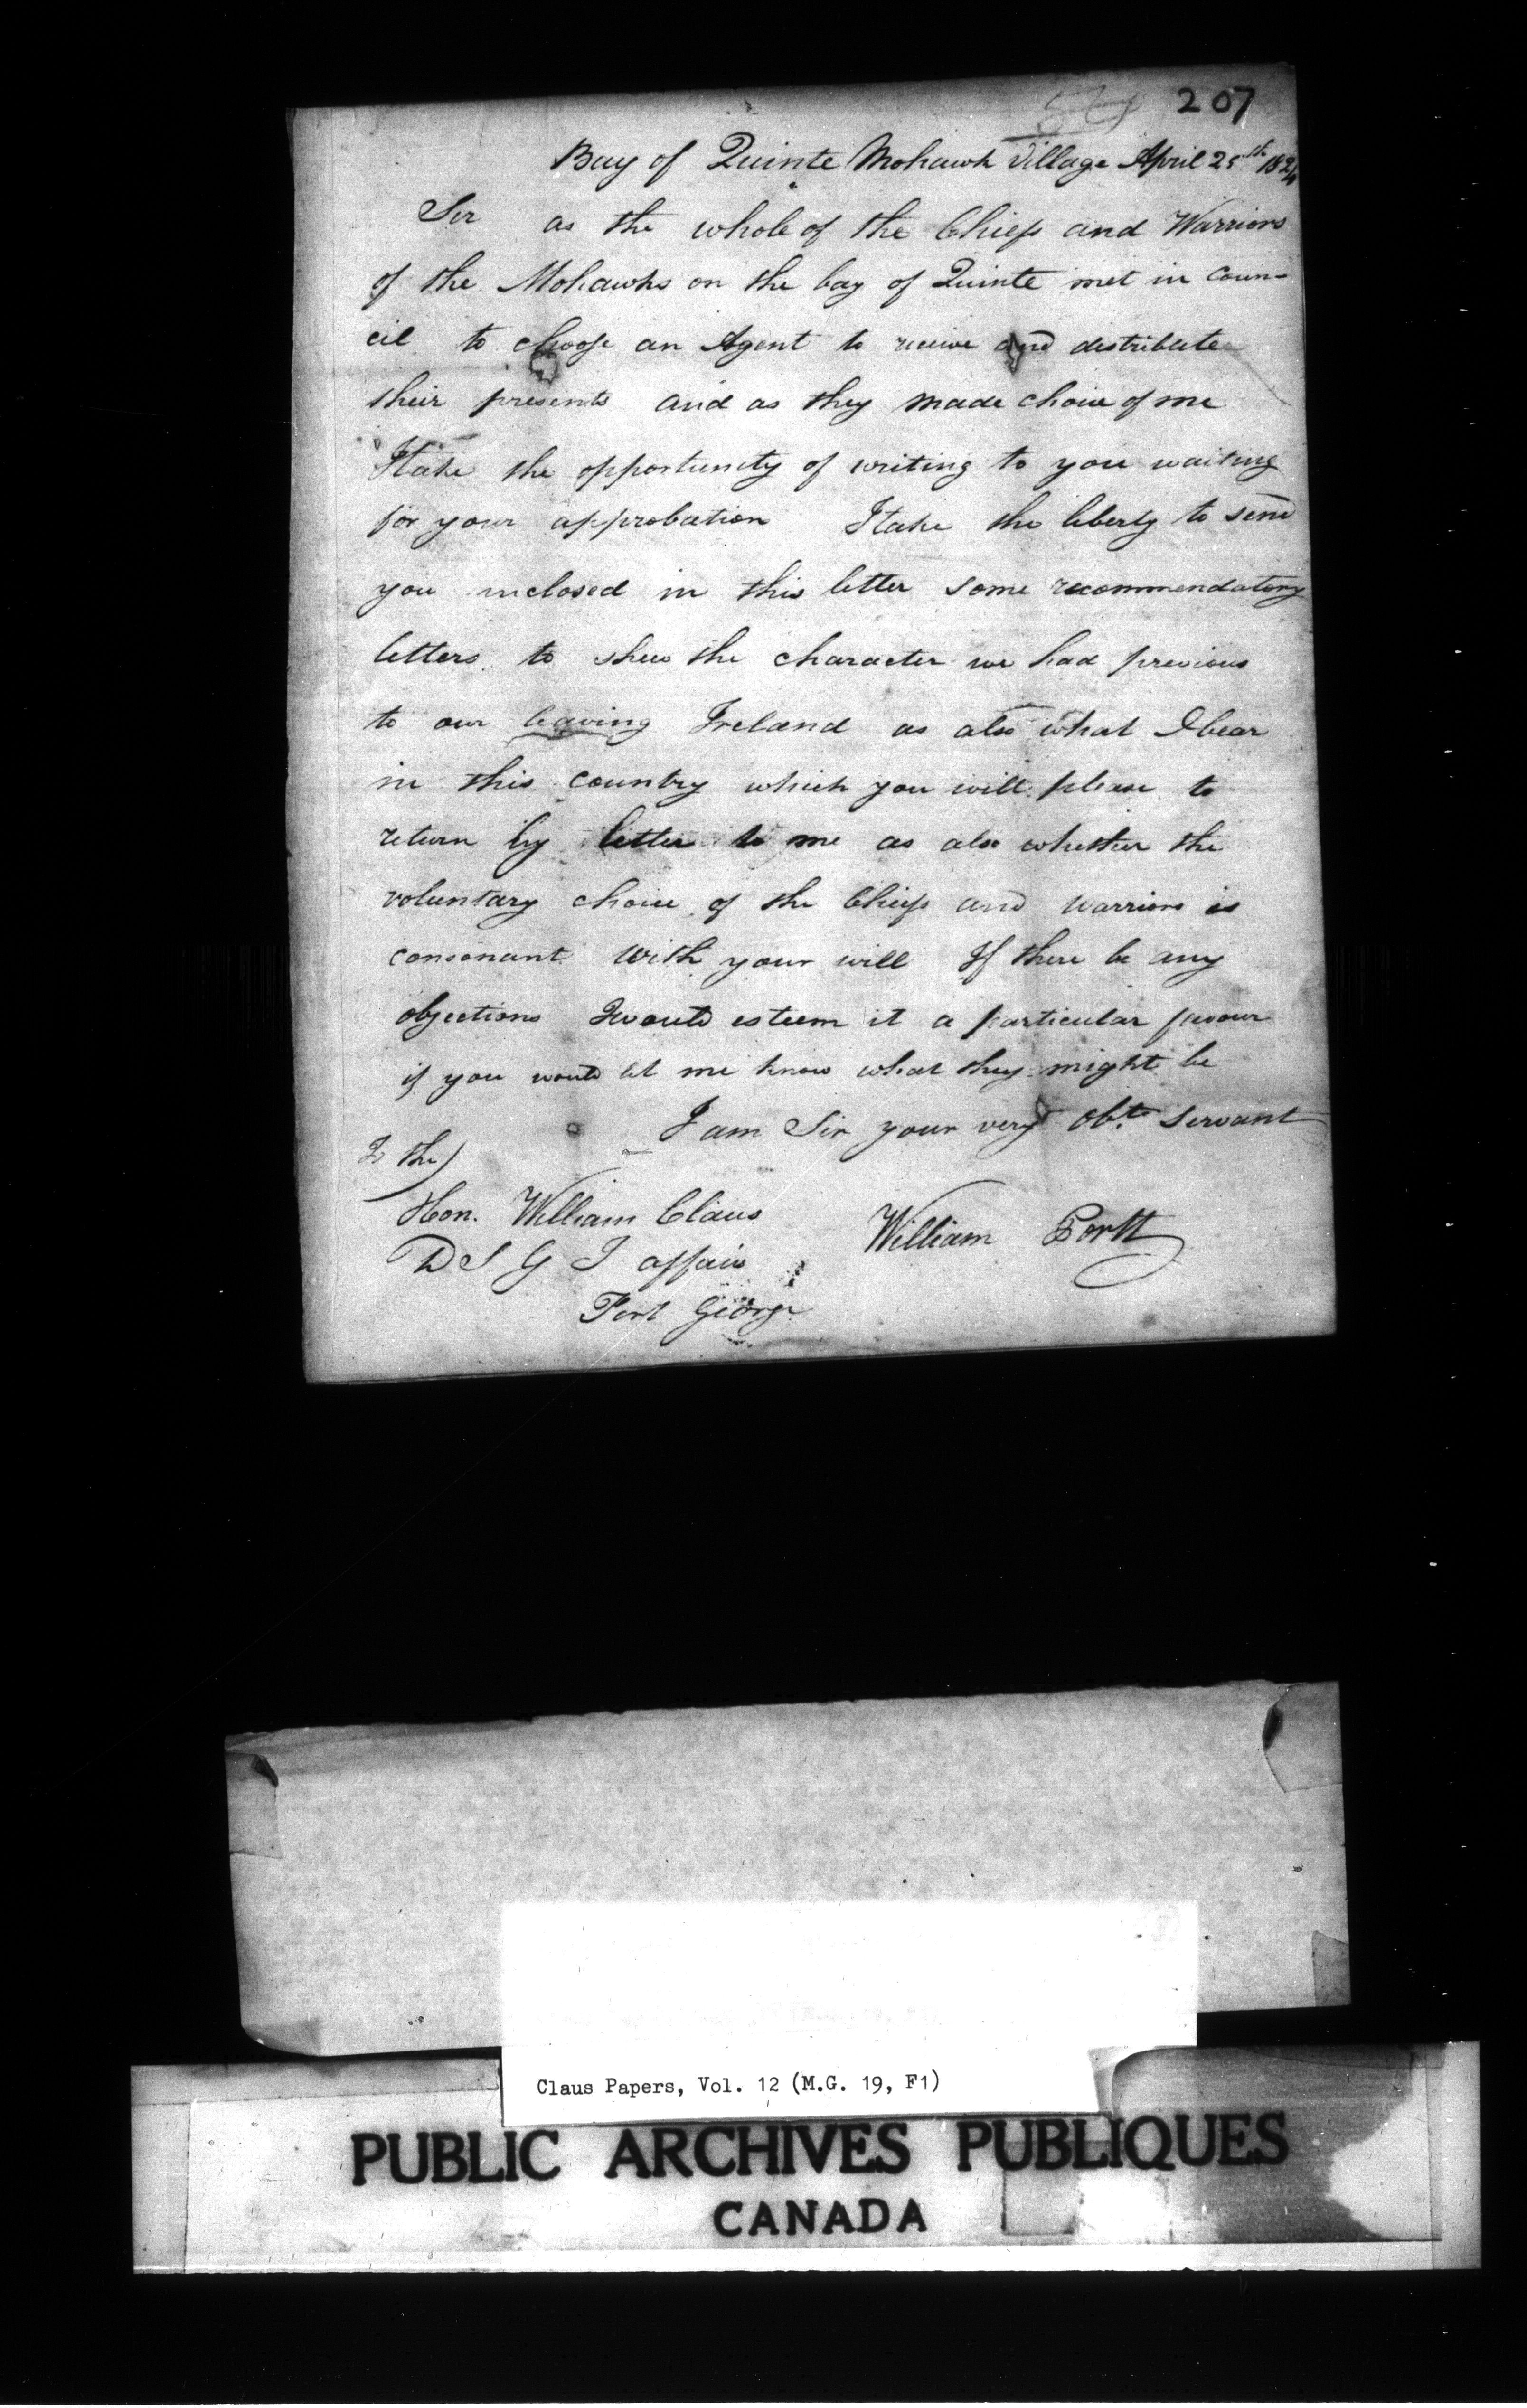 207
Bay of Quinte Mohawk Village April 25th 1824
Sir as the whole of the Chiefs and Warriors
of the Mohawks on the bay of Quinte met in Coun-
cil to choose an Agent to receive and distribute
their presents and as they made choice of me
I take the opportunity of writing to you waiting
for your approbation I take the liberty to send
you inclosed in this letter some recommendatory
letters to shew the character we had previous
to our leaving Ireland as also what I bear
in this country which you will please to
return by letter to me as also whether the
voluntary choice of the Chiefs and warriors is
consonant with your will If there be any
objections I would esteem it a particular favour
if you would let me know what they might be
I am Sir your very obt. Servant
To the)
Hon. William Claus
William Portt
D S G I affairs
Fort George
Claus Papers, Vol. 12 (M.G. 19, F1)
PUBLIC ARCHIVES PUBLIQUES
CANADA